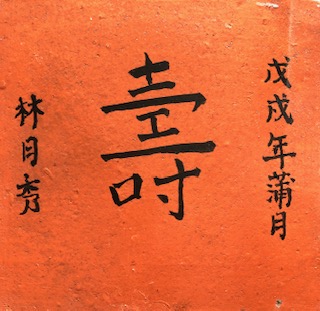 戊戌年蒲月
壽
林月秀